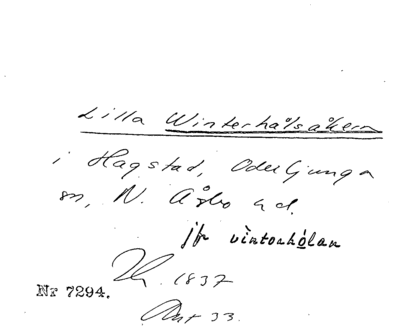 Lilla Winterhålsåkern
i Hagstad, Oderljunga
sn, N. Åsbo hd.
jfr vìntorhólan
1837
Nr 7294.
Akt 33.